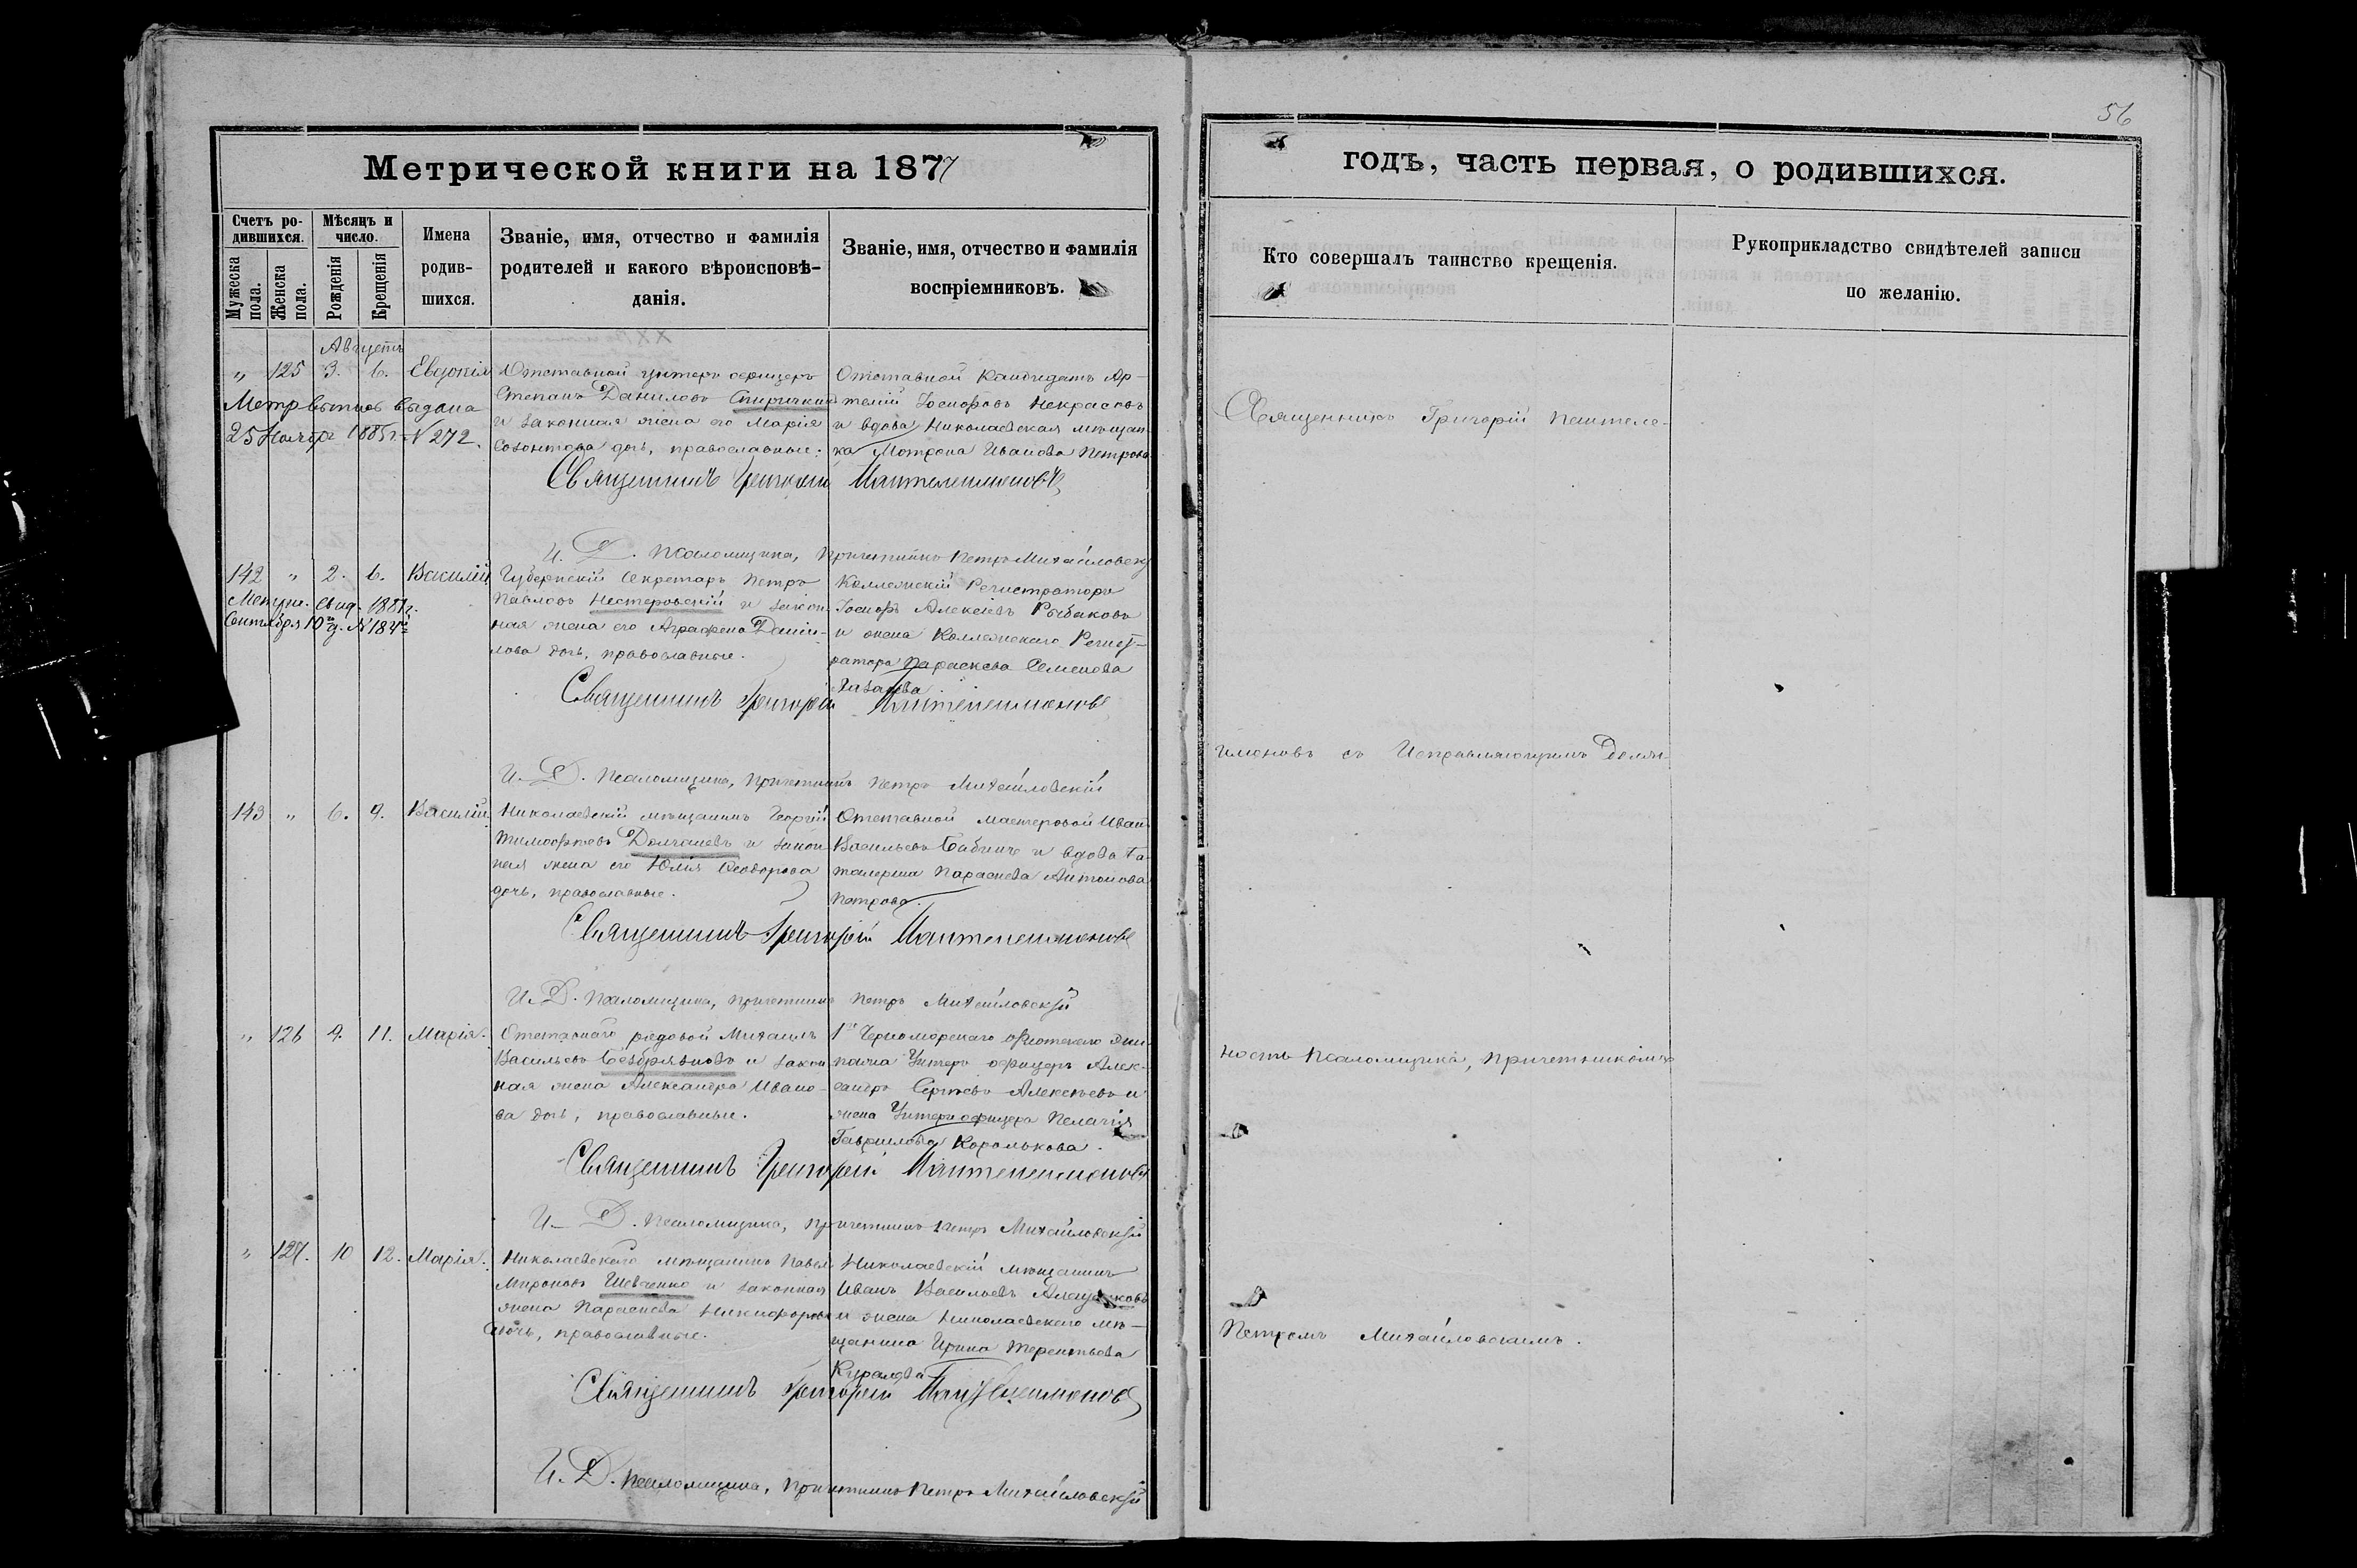 56
Метрической книги на 1877
годъ, часть первая, о родившихся.
Счетъ ро-
дившихся.
Мужеска пола.
Женска пола.
Мѣсяцъ и
число.
Рожденія
Крещенія
Имена
родив-
шихся.
Званіе, имя, отчество и фамилія
родителей и какого вѣроисповѣ-
данія.
Званіе, имя, отчество и фамилія
воспріемниковъ.
Кто совершалъ таинство крещенія.
Рукоприкладство свидѣтелей записи
по желанію.
Августъ
" 125 3. 6. Евдокія
Метр выпись выдана
25 Ноября 1885 г. № 272.
Отставной унтеръ офицеръ
Степанъ Даниловъ
и законная жена его Марія
Созонтова дочь, православные.
Отставной Кандидатъ Ар-
темій Іосифовъ Некрасовъ
и вдова Николаевская мѣщан-
ка Мотрона Иванова Петрова
Священникъ Григорій Пантелеимоновъ
И. Д. Псаломщика, Причетникъ Петръ Михайловскій
142 " 2. 6. Василій
Метрич. свид. 1881 г.
Сентября 10 д. № 184
Губернскій Секретарь Петръ
Павловъ Нестеровскій и закон-
ная жена его Аграфена Дани-
лова дочь, православные.
Коллежскій Регистраторъ
Іосифъ Алексѣевъ Рыбаковъ
и жена Коллежскаго Регист-
ратора Параскева Семенова
Священникъ Григорій Пантелеимоновъ
И. Д. Псаломщика, Причетникъ Петръ Михайловскій
143 " 6. 9. Василій
Николаевскій мѣщанинъ Георгій
Тимофѣевъ и закон-
ная жена его Юлія Феодорова
дочь, православные.
Отставной мастеровой Иванъ
Васильевъ Бабичъ и вдова Га-
талерша Параскева Антонова
Петрова.
Священникъ Григорій Пантелеимоновъ
И. Д. Псаломщика, Причетникъ Петръ Михайловскій
" 126 9. 11. Марія.
Отставной рядовой Михаилъ
Васильевъ и закон-
ная жена Александра Ивано-
ва дочь, православные.
1го Черноморскаго флотскаго Эки-
пажа Унтеръ офицеръ Алек-
сандръ Сергѣевъ Алексѣевъ и
жена Унтеръ офицера Пелагія
Гаврилова Королькова.
Священникъ Григорій Пантелеимоновъ
И. Д. Псаломщика, Причетникъ Петръ Михайловскій
" 127. 10 12. Марія.
Николаевскаго мѣщанинъ Павелъ
Мироновъ Шевченко и законная
жена Параскева Никифорова
дочь, православные.
Николаевскій мѣщанинъ
Иванъ Васильевъ
и жена Николаевскаго мѣ-
щанина Ирина Терентьева
Священникъ Григорій Пантелеимоновъ
И. Д. Псаломщика, Причетникъ Петръ Михайловскій
Священникъ Григорій Пантеле-
имоновъ съ Исправляющимъ Долж-
ность Псаломщика, Причетникомъ
Петромъ Михайловскимъ.